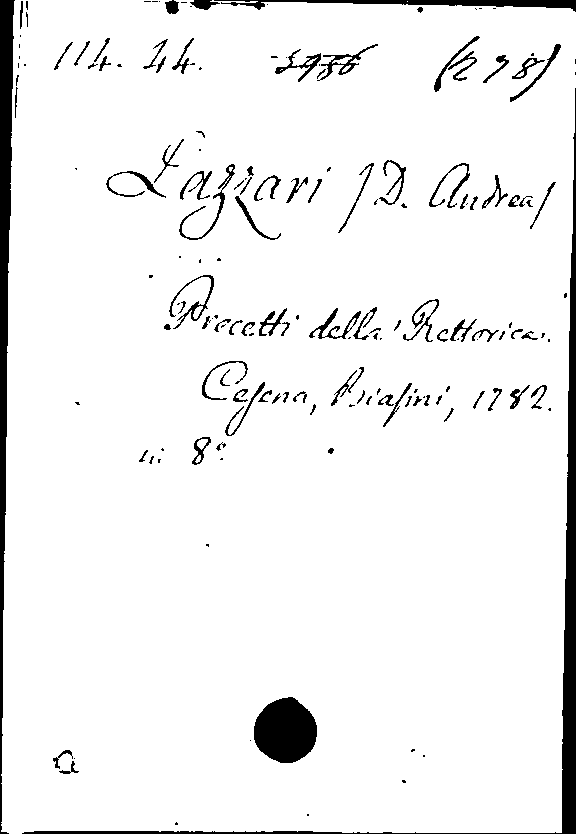 114. 44. 5986 (278)
Lazzari / D. Andrea /
Precetti della Rettorica.
Cesena, Biasini, 1782.
in 8°.
a